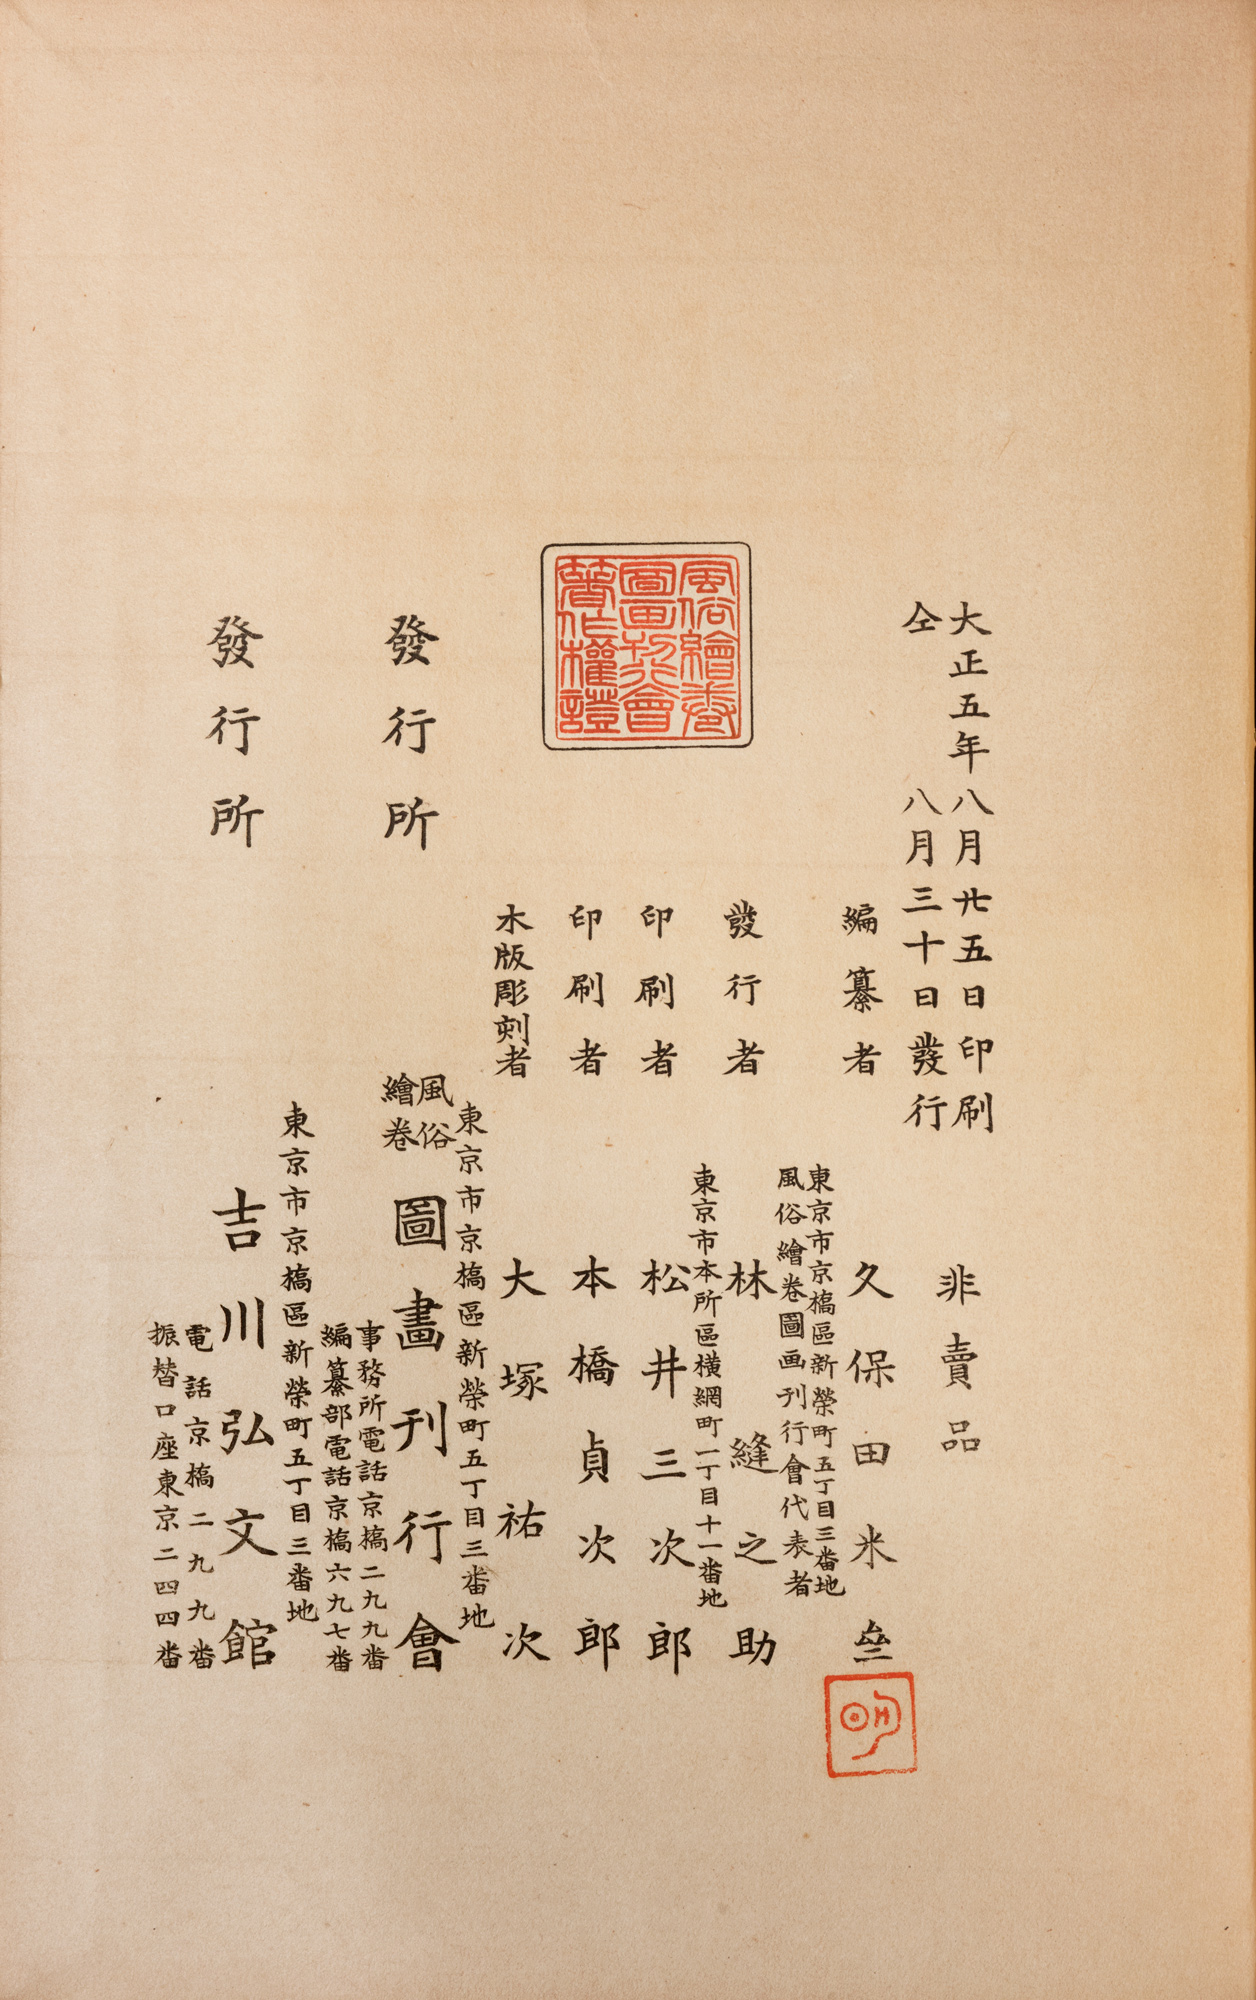 大正五年八月廿五日印刷
仝八月三十日發行
非賣品
編纂者
久保田米斎
東京市京橋區新榮町五丁目三番地
風俗繪卷圖画刊行會代表者
發行者
林縫之助
東京市本所區横網町一丁目十一番地
印刷者
松井三次郎
印刷者
本橋貞次郎
木版彫刻者
大塚祐次
風俗繪卷圖畫刊行會著作權證
東京市京橋區新榮町五丁目三番地
發行所
風俗繪卷圖畫刊行會
事務所電話京橋二九九番
編纂部電話京橋六九七番
東京市京橋區新榮町五丁目三番地
發行所
吉川弘文館
電話京橋二九九番
振替口座東京二四四番